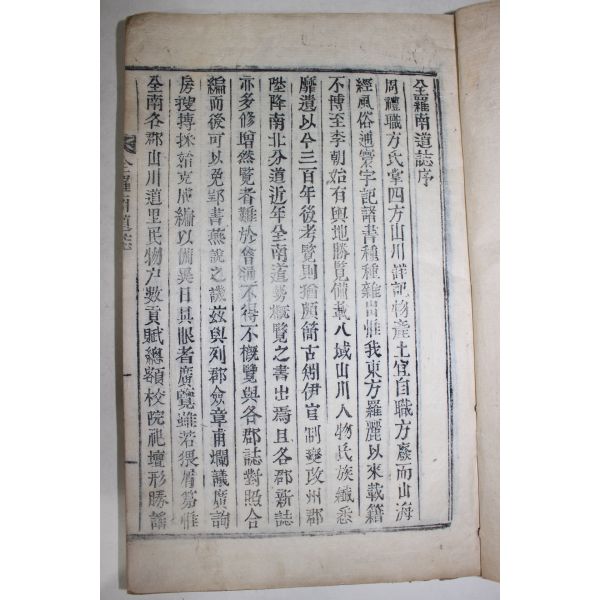 全羅南道誌序
周禮職方氏掌四方山川詳記物産土宜自職方廢而山海
經風俗通寰宇記諸書種種雜出惟我東方羅麗以來載籍
不博至李朝始有輿地勝覽備載八域山川人物民族纖悉
靡遺以今三百年後考覽則猶頗簡古矧伊官制變改州郡
陞降南北分道近年全南道勢概覽之書出焉且各郡新誌
亦多修增然覽者難於會通不得不概覽與各郡誌對照合
編而後可以免郢書燕說之譏玆與列郡僉章甫爛議廣詢
旁搜摶採始克成編以備異日具眼者廣覽雖若猥屑蒭惟
全南各郡山川道里民物户數貢賦總額校院祀壇形勝謠
全羅南道誌